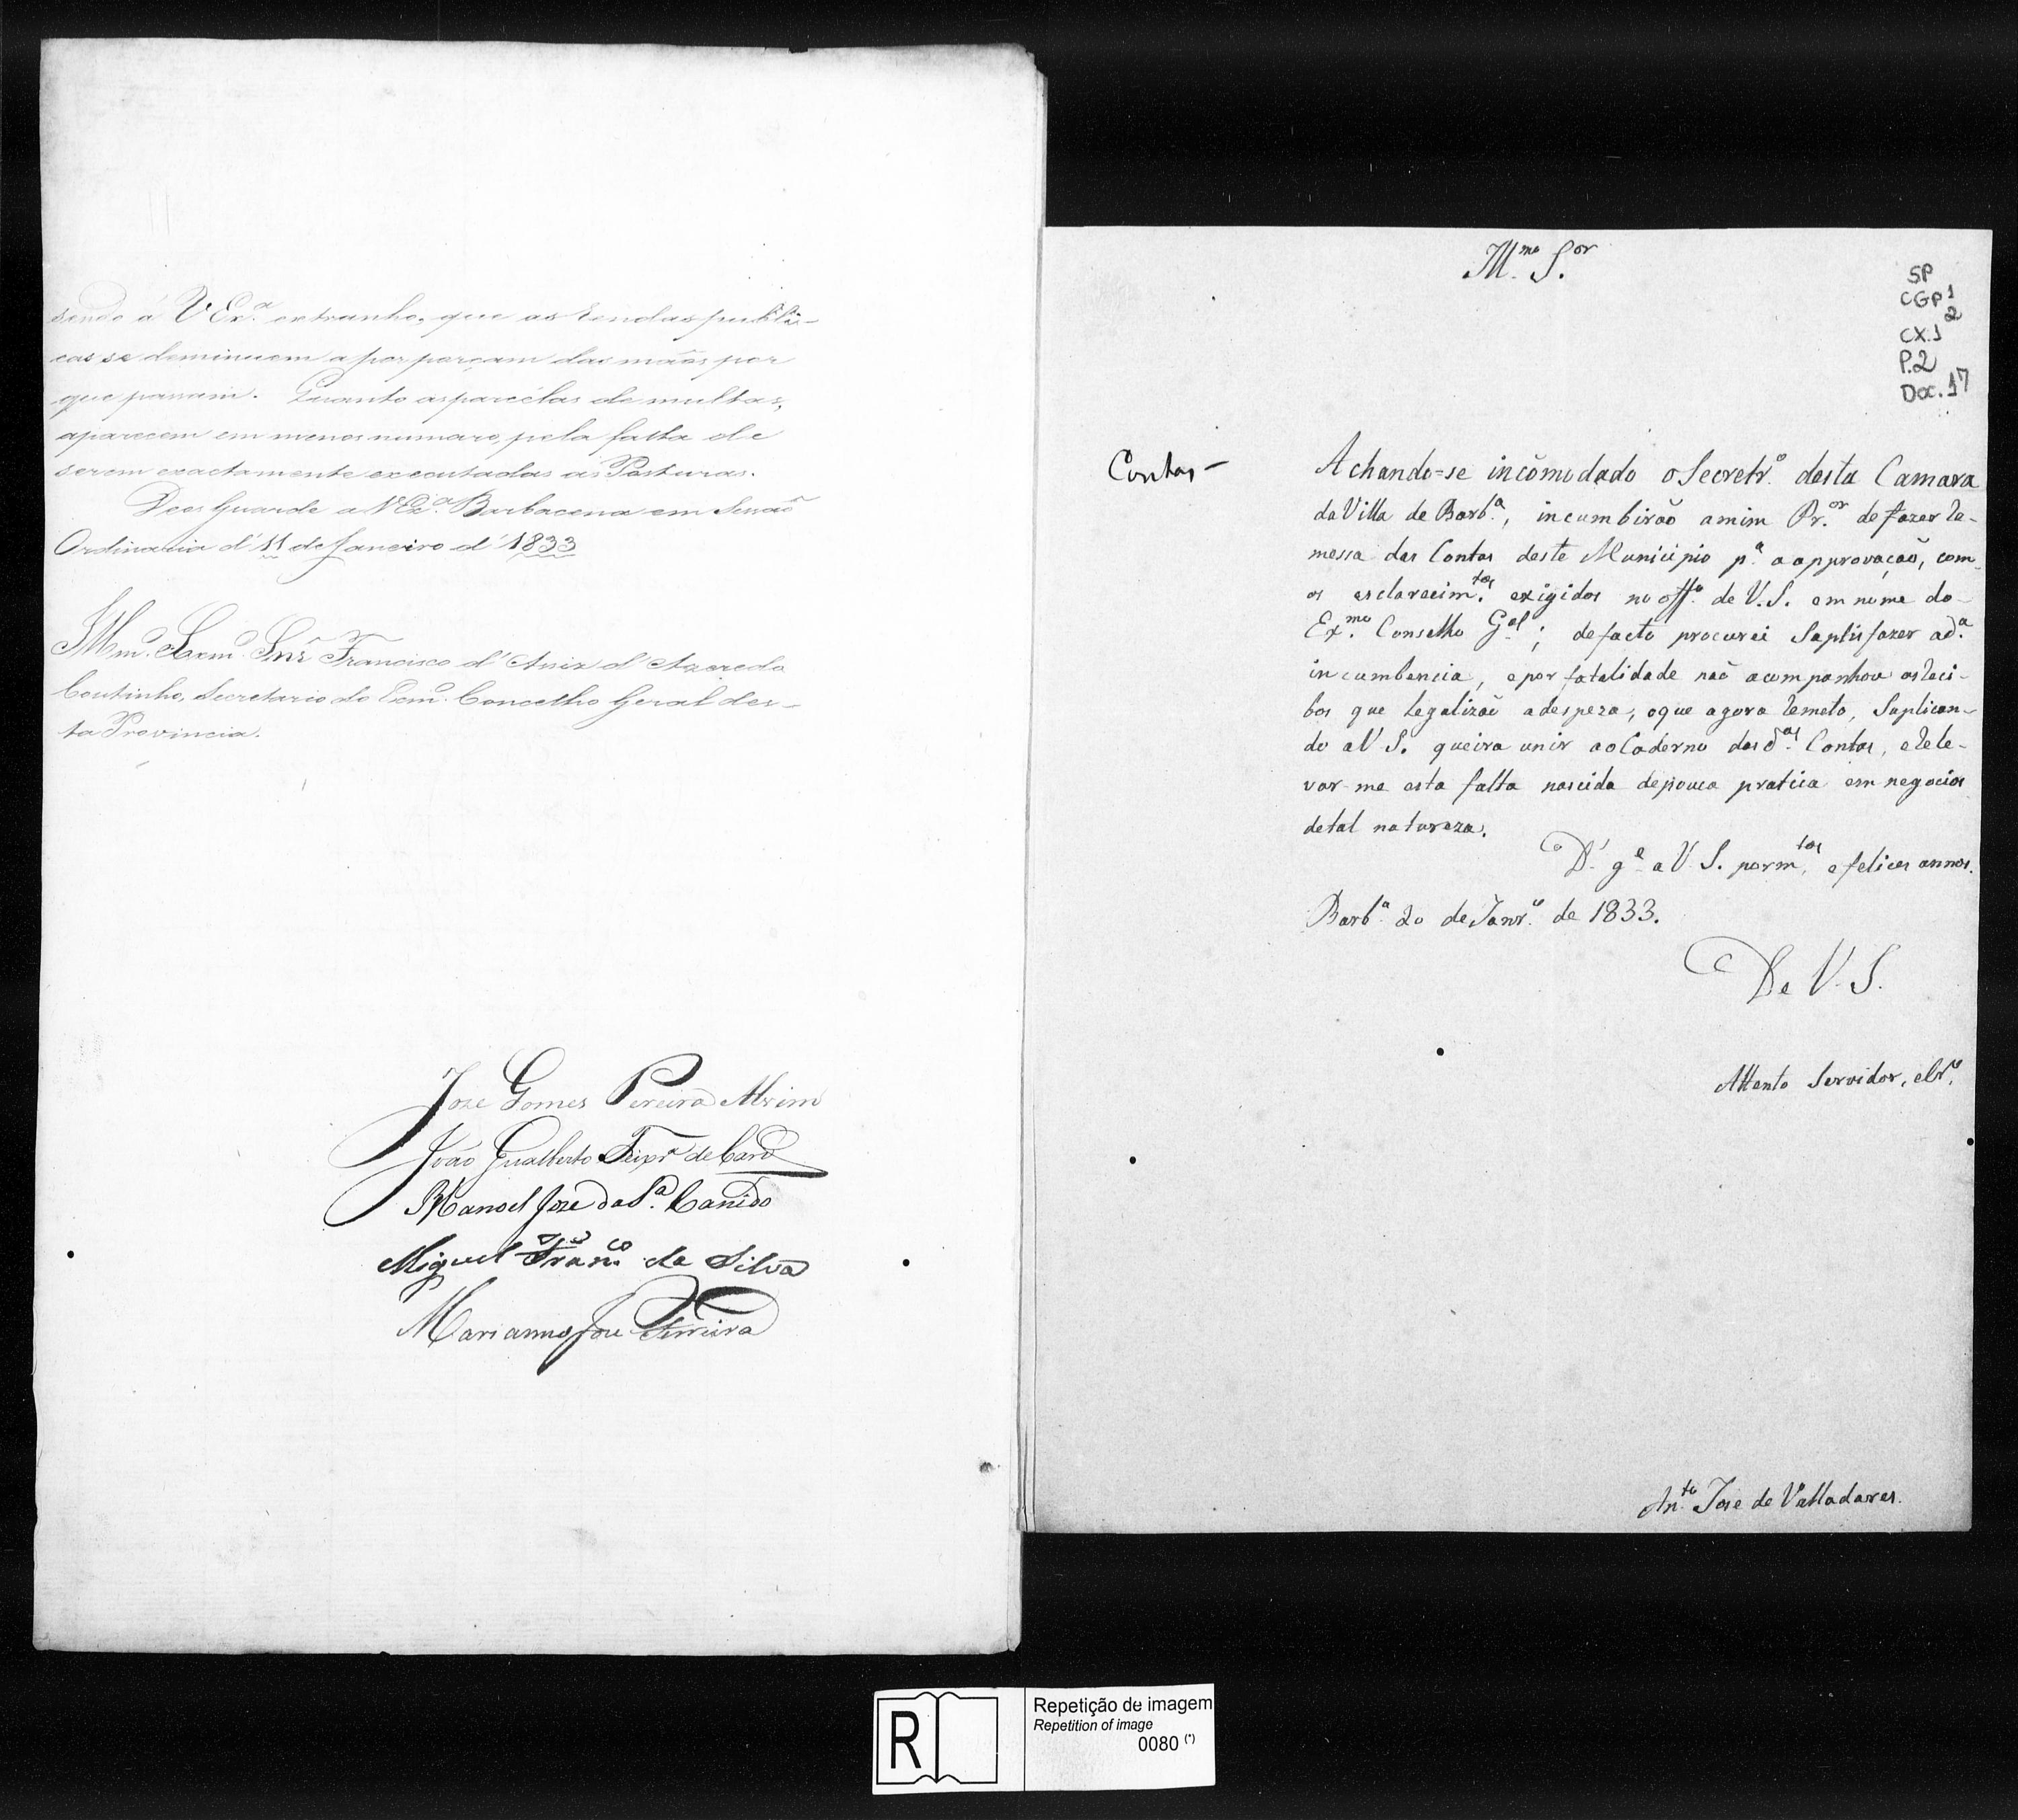 sendo á V Ex.ª extranho, que as Rendas publi-
cas se deminuem a porporçam das mãos por
que passam. Quanto as parcélas de multas,
aparecem em menos numaro, pela falta de
serem exactamente executadas as Posturas.
Deos Guarde a V Ex.ª Barbacena em Sessaõ
Ordinaria d' 11 de Janeiro d' 1833
Illm.º Exm.º Snr. Francisco d' Assiz d' Azeredo
Coutinho, Secretario do Exm.º Concelho Geral des-
ta Provincia.
Joze Gomes Pereira Alvim
João Gualberto Teixr.ª de Carv.º
Manoel Joze da S.ª Canedo
Miguel Fran.co da Silva
Marianno Joze Ferreira
Ill.mo S.or
SP
CGP 1
2
CX.1
P.2
Doc. 17
Contas -
Achando=se incõmodado o Secretr.º desta Camara
da Villa de Barb.ª, incumbiraõ amim Pr.or de fazer re-
messa das Contas deste Municipio p.ª a approvaçaõ, com
os esclarecim.tos exigidos no off.º de V.S. em nome do
Ex.mo Conselho G.al; de facto procurei Satisfazer a d.ª
incumbencia, e por fatalidade naõ acompanhou os reci-
bos que legalizaõ a despeza, o que agora remeto, Suplican-
do a V S. queira unir ao Caderno das d.as Contas, e rele-
var-me esta falta nascida de pouca pratica em negocios
de tal natureza.
D.s g.e a V. S. por m.tos e felices annos.
Barb.ª 20 de Janr.º de 1833.
De V. S.
Attento Servidor, e Cr.º
An.to Jose de Valladares.
R
Repetição de imagem
Repetition of image
0080 (*)